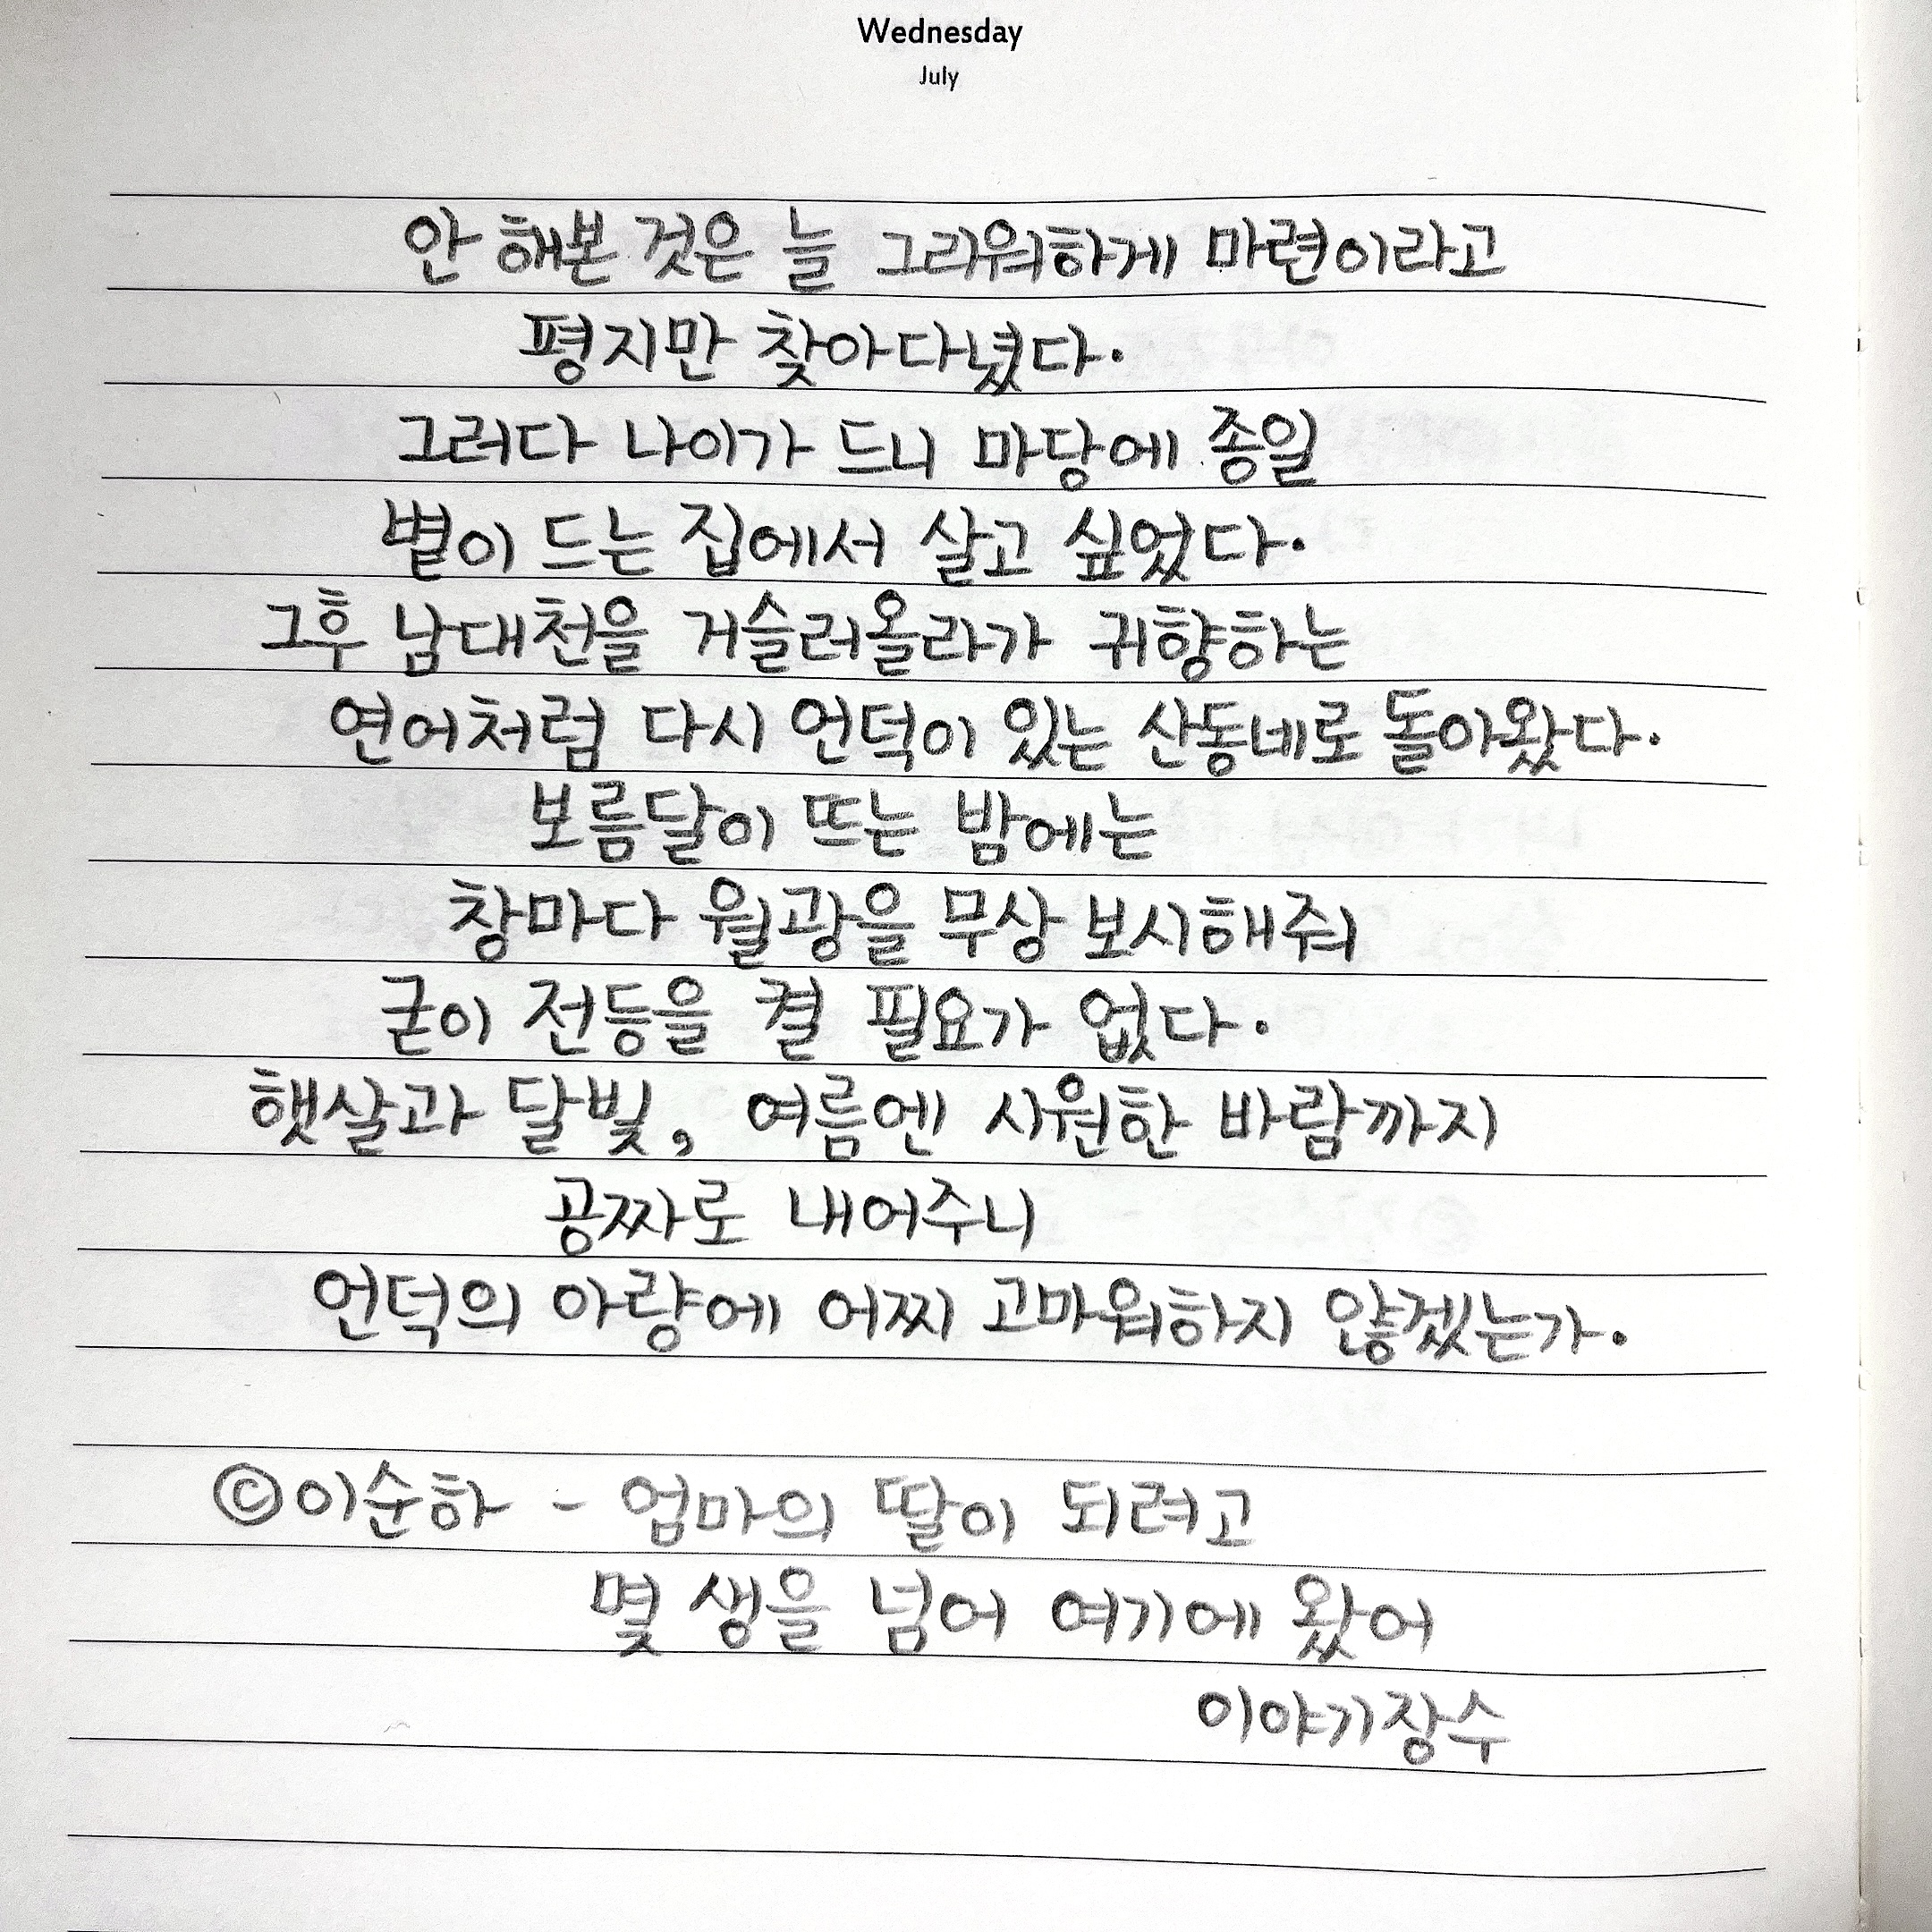 Wednesday
July
안 해본 것은 늘 그리워하게 마련이라고
평지만 찾아다녔다.
그러다 나이가 드니 마당에 종일
볕이 드는 집에서 살고 싶었다.
그후 남대천을 거슬러올라가 귀향하는
연어처럼 다시 언덕이 있는 산동네로 돌아왔다.
보름달이 뜨는 밤에는
창마다 월광을 무상 보시해줘
굳이 전등을 켤 필요가 없다.
햇살과 달빛, 여름엔 시원한 바람까지
공짜로 내어주니
언덕의 아량에 어찌 고마워하지 않겠는가.
©이순하 - 엄마의 딸이 되려고
몇 생을 넘어 여기에 왔어
이야기장수